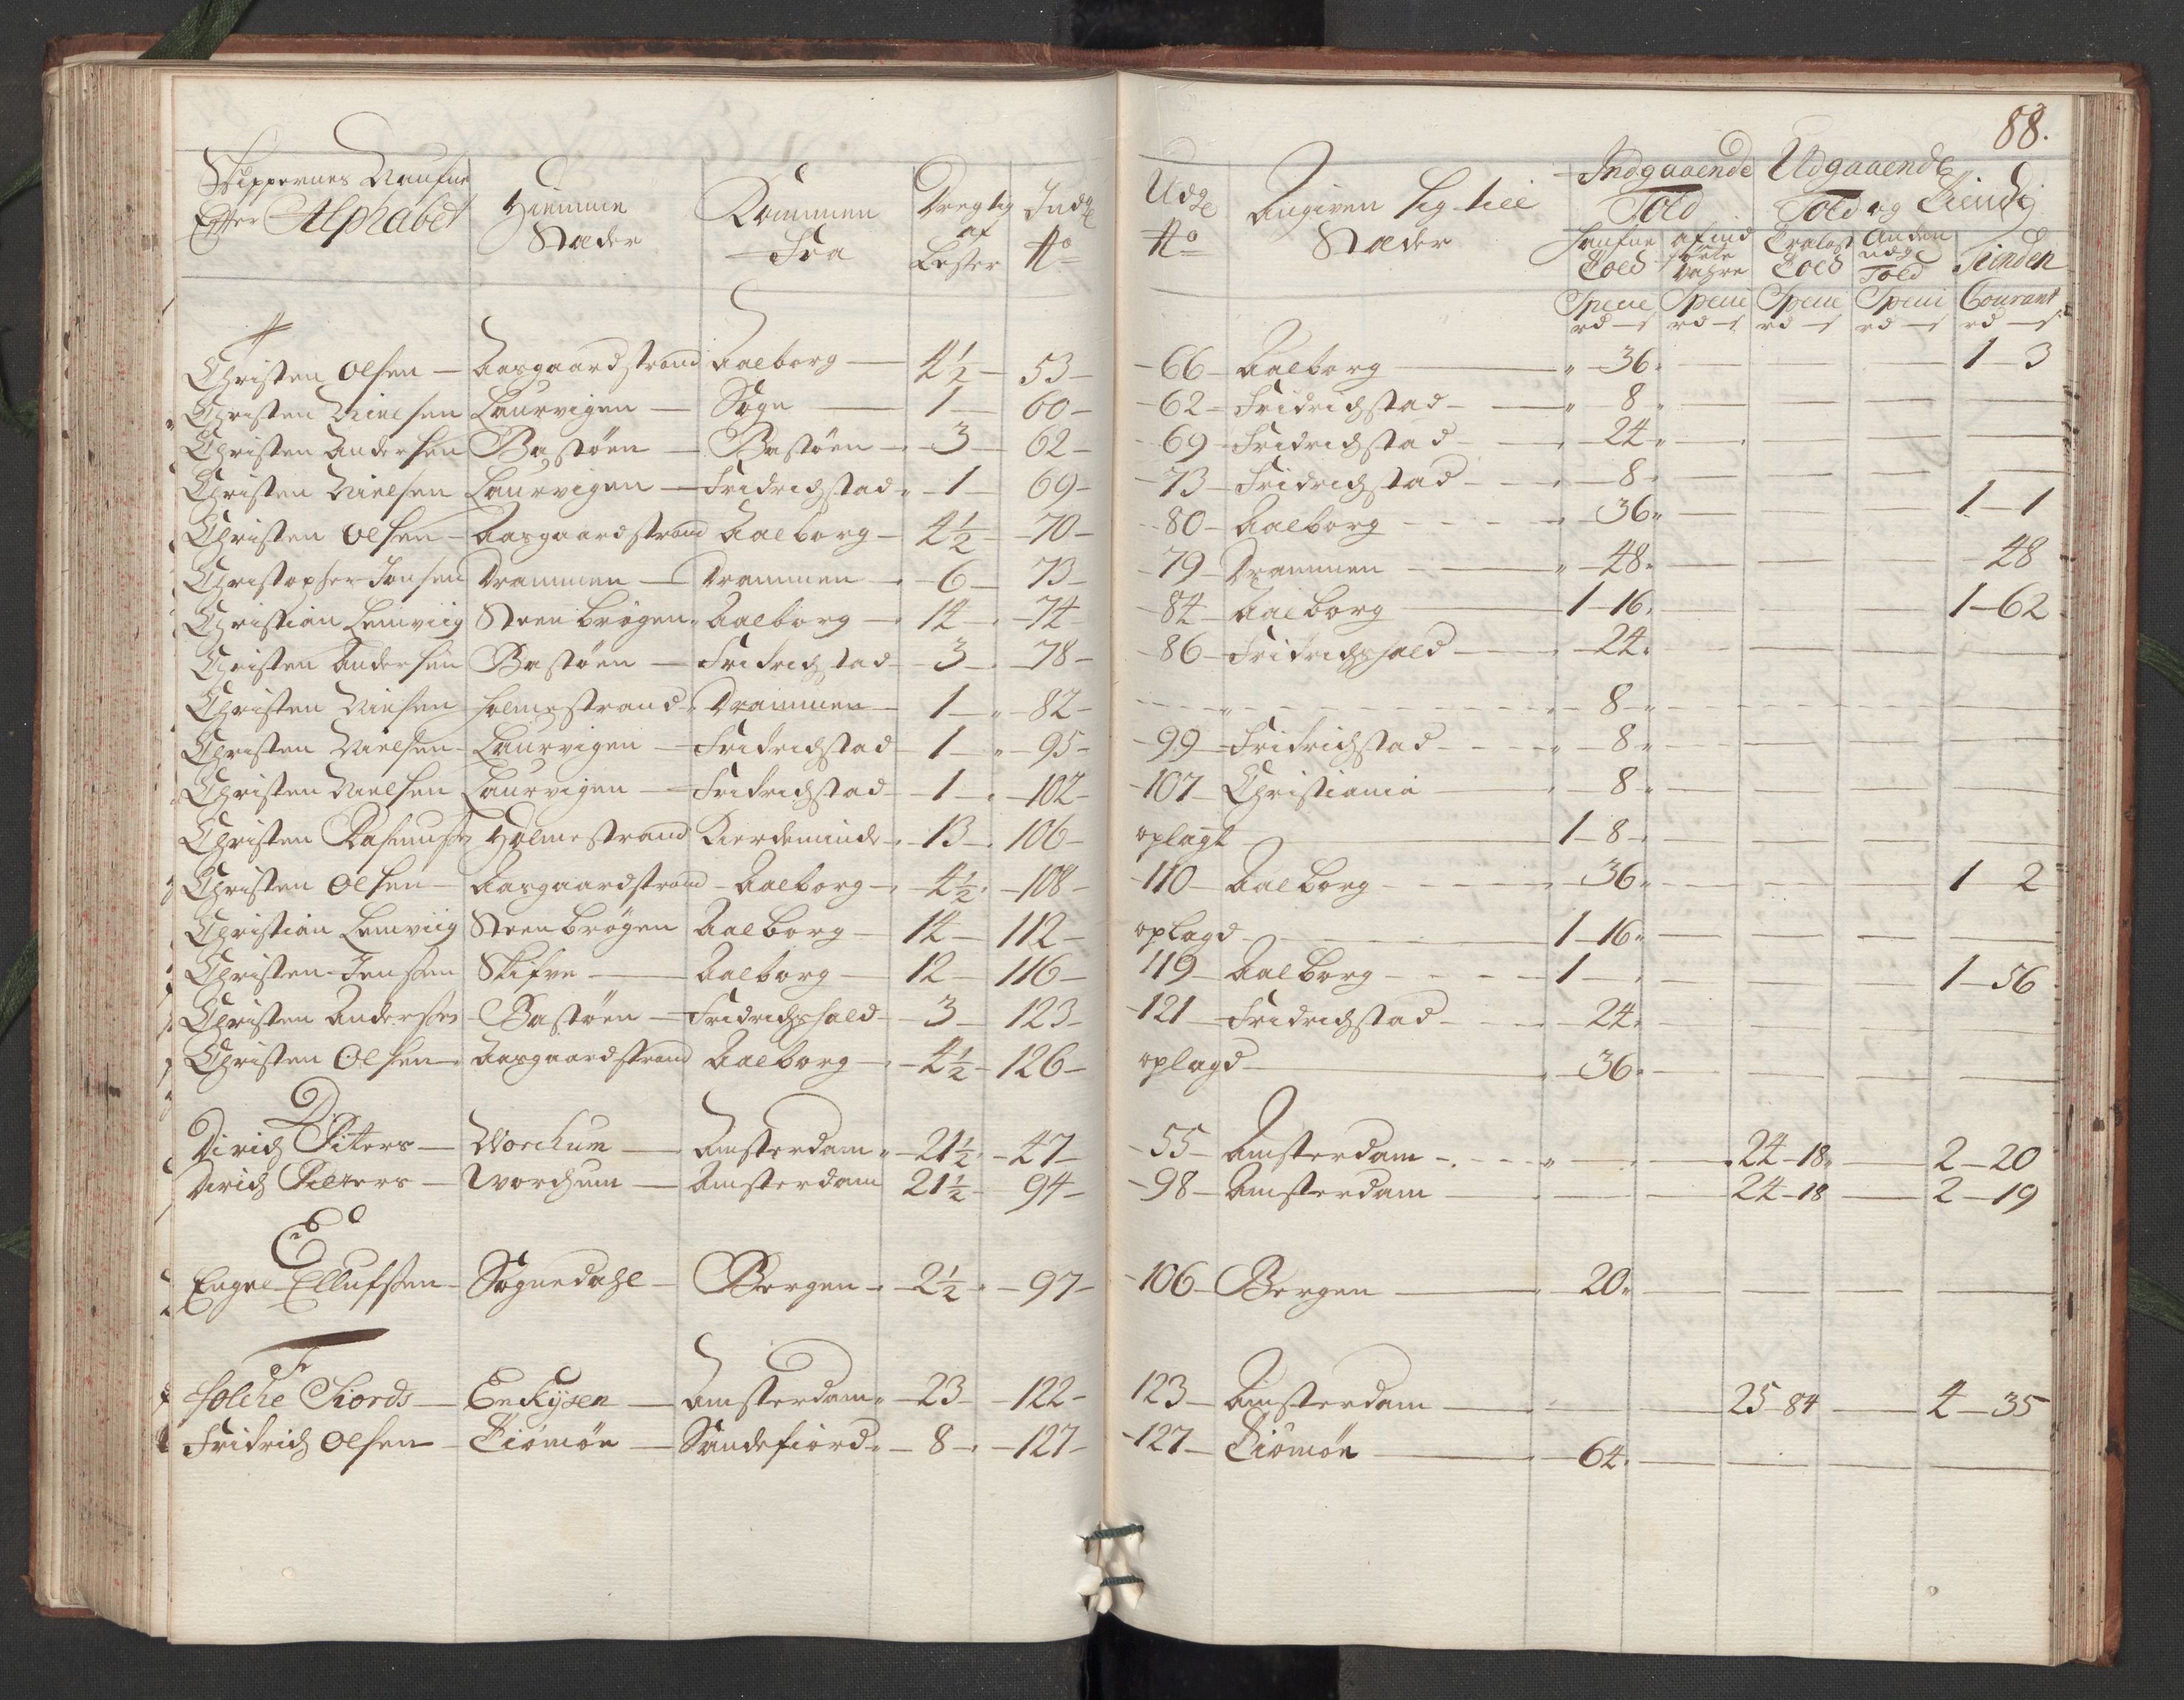 88.
Skippernes Naufne Hiemme Kommen Drægtig Indg Udg Angiven sig till Indgaaende Udgaaende
Efter Alphabet Stæder Fra af Lester No No Stæder Told Told og Tiende
Haufne Told af ind førte Vahre Told Anden udg Told Tienden
Specie Specie Specie Specie Courant
rd s rd s rd s rd s rd s
Christen Olsen Aasgaardstrand Aalborg 4½ 53 66 Aalborg 36 1 3
Christen Nielsen Laurvigen Sogn 1 60 62 Fridrichstad 8
Christen Andersen Bastøen Bastøen 3 62 69 Fridrichstad 24
Christen Nielsen Laurvigen Fridrichstad 1 69 73 Fridrichstad 8
Christen Olsen Aasgaardstrand Aalborg 4½ 70 80 Aalborg 36 1 1
Christopher Jonsen Drammen Drammen 6 73 79 Drammen 48 48
Christian Lemviig Steenbrøgen Aalborg 14 74 84 Aalborg 1 16 1 62
Christen Andersen Bastøen Fridrichstad 3 78 86 Fridrichshald 24
Christen Nielsen Holmestrand Drammen 1 82 8
Christen Nielsen Laurvigen Fridrichstad 1 95 99 Fridrichstad 8
Christen Nielsen Laurvigen Fridrichstad 1 102 107 Christiania 8
Christen Rasmussen Holmestrand Kierdeminde 13 106 oplagt 1 8
Christen Olsen Aasgaardstrand Aalborg 4½ 108 110 Aalborg 36 1 2
Christian Lemviig Steenbrøgen Aalborg 14 112 oplagd 1 16
Christen Jensen Skifve Aalborg 12 116 119 Aalborg 1 1 56
Christen Andersen Bastøen Fridrichshald 3 123 121 Fridrichstad 24
Christen Olsen Aasgaardstrand Aalborg 4½ 126 oplagd 36
D
Dirich Piters Worchum Amsterdam 21½ 47 55 Amsterdam 24 18 2 20
Dirich Pieters Worchum Amsterdam 21½ 94 98 Amsterdam 24 18 2 19
E
Engel Ellufsen Sognedahl Bergen 2½ 97 106 Bergen 20
F
Folche Siords Enkysen Amsterdam 23 122 123 Amsterdam 25 84 4 35
Fridrich Olsen Tiømøe Sandefiord 8 127 127 Tiømøe 64